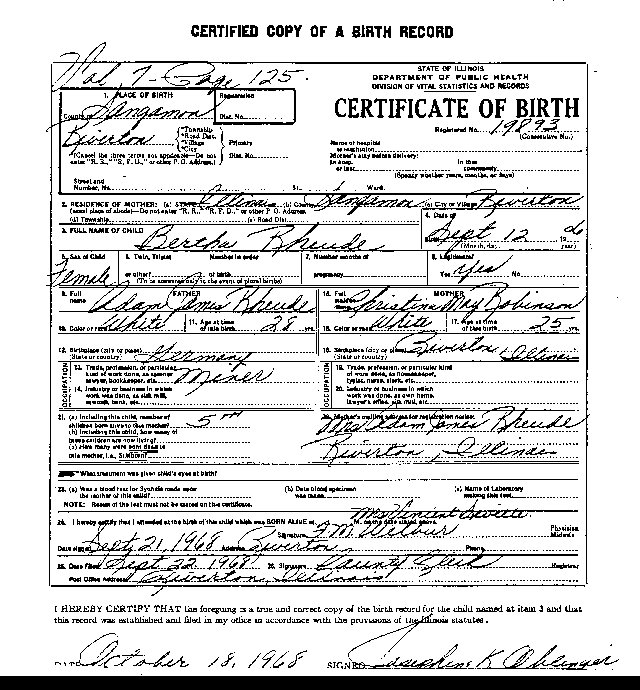 CERTIFIED COPY OF A BIRTH RECORD
Vol. 7 - Page 125.
STATE OF ILLINOIS
DEPARTMENT OF PUBLIC HEALTH
DIVISION OF VITAL STATISTICS AND RECORDS
CERTIFICATE OF BIRTH
Registered No. 19893
(Consecutive No.)
1. PLACE OF BIRTH
Registration
Dist. No.
County of Sangamon
Riverton
*Township
*Road Dist.
*Village
*City
Primary
Dist. No.
Street and
Number, No. St. Ward.
2. RESIDENCE OF MOTHER: (a) STATE Illinois (b) County Sangamon (c) City or Village Riverton
(d) Township (e) Road Dist.
3. FULL NAME OF CHILD Bertha Rheude
4. Date of
Birth Sept 12
(Month, day year)
5. Sex of Child Female
6. Twin, Triplet
or other?
Number in order
of birth
(To be answered only in the event of plural births)
7. Number months of
pregnancy
8. Legitimate?
Yes Yes No.
9. Full
name
FATHER
Adam Jones Rheude
10. Color or race White 11. Age at time
of this birth 28 yrs.
12. Birthplace (city or place)
(State or country) Germany
OCCUPATION
13. Trade, profession, or particular
kind of work done, as spinner,
sawyer, bookkeeper, etc. Miner
14. Industry or business in which
work was done, as silk mill,
sawmill, bank, etc.
15. Full
maiden
name
MOTHER
Christina May Robinson
16. Color or race White 17. Age at time
of this birth 25 yrs.
18. Birthplace (city or place) Riverton Illinois
(State or country)
OCCUPATION
19. Trade, profession, or particular kind
of work done, as housekeeper,
typist, nurse, clerk, etc.
20. Industry or business in which
work was done, as own home,
lawyer's office, silk mill, etc.
21. (a) Including this child, number of
children born alive to this mother? 5
(b) Including this child, how many of
these children are now living?
(c) How many were born dead to
this mother, i.e., Stillborn?
22. Mother's mailing address for registration notice:
Mrs Adam Jones Rheude
Riverton, Illinois
What treatment was given child's eyes at birth?
23. (a) Was a blood test for Syphilis made upon
the mother of this child?
(b) Date blood specimen
was taken
(c) Name of Laboratory
making this test
NOTE: Result of the test must not be stated on the certificate.
24. I hereby certify that I attended at the birth of this child which was BORN ALIVE at M. on the date stated above.
Signature F. M. Wilbur
Physician
Midwife
Date signed Sept 21, 1968 Address Riverton Phone
25. Date Filed Sept 22, 1968 26. Signature County Clerk Registrar
Post Office Address Riverton, Illinois
I HEREBY CERTIFY THAT the foregoing is a true and correct copy of the birth record for the child named at item 3 and that
this record was established and filed in my office in accordance with the provisions of the Illinois statutes.
October 18, 1968 SIGNED Josephine K Oblinger